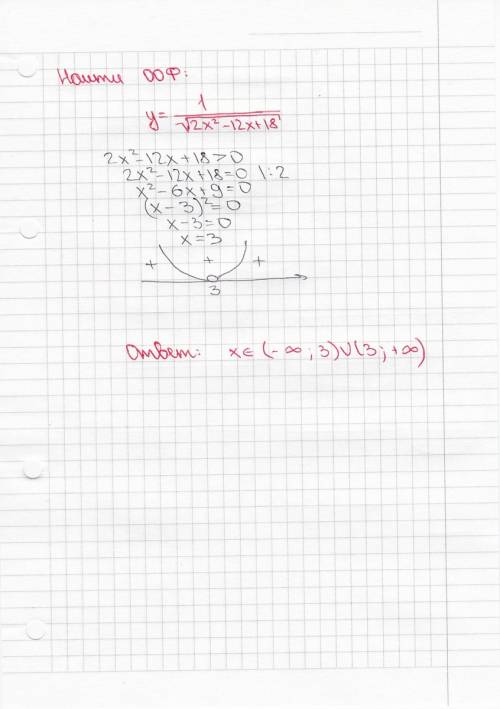 Найти ООФ:
y = 1/√(2x²-12x+18)
2x²-12x+18>0
2x²-12x+18=0 |:2
x²-6x+9=0
(x-3)²=0
x-3=0
x=3
+ + +
3
Ответ: x∈(-∞;3)∪(3;+∞)